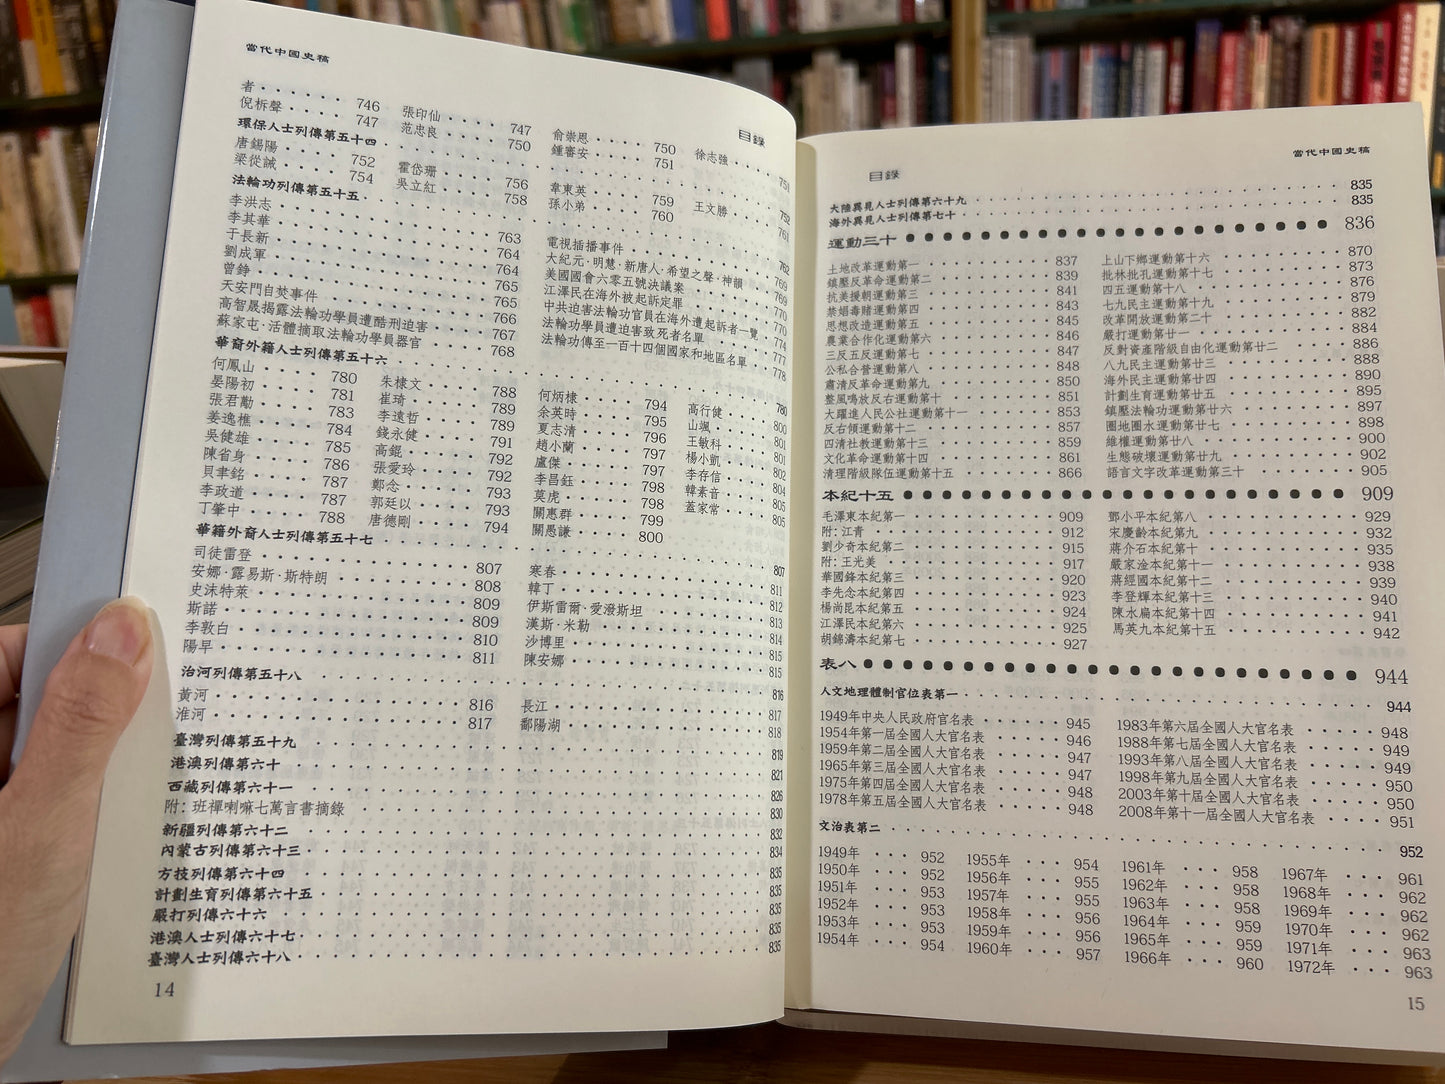 當代中國史稿
目錄
者 · · · · · · 746 張印仙 · · · · 747 俞崇恩 · · · · 750 徐志強 · · · · 751
倪柝聲 · · · · 747 范忠良 · · · · 750 鍾審安 · · · · 751
環保人士列傳第五十四 · · · · · · 752
唐錫陽 · · · · 752 霍岱珊 · · · · 756 韋東英 · · · · 759 王文勝 · · · · 761
梁從誡 · · · · 754 吳立紅 · · · · 758 孫小弟 · · · · 760
法輪功列傳第五十五 · · · · · · 762
李洪志 · · · · · · 763 電視插播事件 · · · · · · 769
李其華 · · · · · · 764 大紀元·明慧·新唐人·希望之聲·神韻 · · 769
于長新 · · · · · · 764 美國國會六零五號決議案 · · · · 770
劉成軍 · · · · · · 765 江澤民在海外被起訴定罪 · · · · 770
曾錚 · · · · · · 765 中共迫害法輪功官員在海外遭起訴者一覽 · 774
天安門自焚事件 · · · · · · 766 法輪功學員遭迫害致死者名單 · · · · 777
高智晟揭露法輪功學員遭酷刑迫害 · · · · 767 法輪功傳至一百十四個國家和地區名單 · · 778
蘇家屯·活體摘取法輪功學員器官 · · · · 768
華裔外籍人士列傳第五十六 · · · · · · 780
何鳳山 · · · · 780 朱棣文 · · · · 788 何炳棣 · · · · 794 高行健 · · · · 800
晏陽初 · · · · 781 崔琦 · · · · 789 余英時 · · · · 795 山颯 · · · · 801
張君勱 · · · · 783 李遠哲 · · · · 789 夏志清 · · · · 796 王敏科 · · · · 801
姜逸樵 · · · · 784 錢永健 · · · · 791 趙小蘭 · · · · 797 楊小凱 · · · · 802
吳健雄 · · · · 785 高錕 · · · · 792 盧傑 · · · · 797 李存信 · · · · 804
陳省身 · · · · 786 張愛玲 · · · · 792 李昌鈺 · · · · 798 韓素音 · · · · 805
貝聿銘 · · · · 787 鄭念 · · · · 793 莫虎 · · · · 798 蓋家常 · · · · 805
李政道 · · · · 787 郭廷以 · · · · 793 關惠群 · · · · 799
丁肇中 · · · · 788 唐德剛 · · · · 794 關愚謙 · · · · 800
華籍外裔人士列傳第五十七 · · · · · · 807
司徒雷登 · · · · · · 807 寒春 · · · · · · 811
安娜·露易斯·斯特朗 · · · · · · 808 韓丁 · · · · · · 812
史沫特萊 · · · · · · 809 伊斯雷爾·愛潑斯坦 · · · · · · 813
斯諾 · · · · · · 809 漢斯·米勒 · · · · · · 814
李敦白 · · · · · · 810 沙博里 · · · · · · 815
陽早 · · · · · · 811 陳安娜 · · · · · · 815
治河列傳第五十八 · · · · · · 816
黃河 · · · · · · 816 長江 · · · · · · 817
淮河 · · · · · · 817 鄱陽湖 · · · · · · 818
臺灣列傳第五十九 · · · · · · 819
港澳列傳第六十 · · · · · · 821
西藏列傳第六十一 · · · · · · 826
附: 班禪喇嘛七萬言書摘錄 · · · · · · 830
新疆列傳第六十二 · · · · · · 832
內蒙古列傳第六十三 · · · · · · 834
方技列傳第六十四 · · · · · · 835
計劃生育列傳第六十五 · · · · · · 835
嚴打列傳六十六 · · · · · · 835
港澳人士列傳六十七 · · · · · · 835
臺灣人士列傳六十八 · · · · · · 835
14
目錄
當代中國史稿
大陸異見人士列傳第六十九 · · · · · · 835
海外異見人士列傳第七十 · · · · · · 835
運動三十 ● ● ● ● ● ● 836
土地改革運動第一 · · · · · · 837 上山下鄉運動第十六 · · · · · · 870
鎮壓反革命運動第二 · · · · · · 839 批林批孔運動第十七 · · · · · · 873
抗美援朝運動第三 · · · · · · 841 四五運動第十八 · · · · · · 876
禁娼毒賭運動第四 · · · · · · 843 七九民主運動第十九 · · · · · · 879
思想改造運動第五 · · · · · · 845 改革開放運動第二十 · · · · · · 882
農業合作化運動第六 · · · · · · 846 嚴打運動第廿一 · · · · · · 884
三反五反運動第七 · · · · · · 847 反對資產階級自由化運動第廿二 · · · · 886
公私合營運動第八 · · · · · · 848 八九民主運動第廿三 · · · · · · 888
肅清反革命運動第九 · · · · · · 850 海外民主運動第廿四 · · · · · · 890
整風鳴放反右運動第十 · · · · · · 851 計劃生育運動第廿五 · · · · · · 895
大躍進人民公社運動第十一 · · · · · · 853 鎮壓法輪功運動第廿六 · · · · · · 897
反右領運動第十二 · · · · · · 857 圈地圈水運動第廿七 · · · · · · 898
四清社教運動第十三 · · · · · · 859 維權運動第廿八 · · · · · · 900
文化革命運動第十四 · · · · · · 861 生態破壞運動第廿九 · · · · · · 902
清理階級隊伍運動第十五 · · · · · · 866 語言文字改革運動第三十 · · · · · · 905
本紀十五 ● ● ● ● ● ● 909
毛澤東本紀第一 · · · · · · 909 鄧小平本紀第八 · · · · · · 929
附: 江青 · · · · · · 912 宋慶齡本紀第九 · · · · · · 932
劉少奇本紀第二 · · · · · · 915 蔣介石本紀第十 · · · · · · 935
附: 王光美 · · · · · · 917 嚴家淦本紀第十一 · · · · · · 938
華國鋒本紀第三 · · · · · · 920 蔣經國本紀第十二 · · · · · · 939
李先念本紀第四 · · · · · · 923 李登輝本紀第十三 · · · · · · 940
楊尚昆本紀第五 · · · · · · 924 陳水扁本紀第十四 · · · · · · 941
江澤民本紀第六 · · · · · · 925 馬英九本紀第十五 · · · · · · 942
胡錦濤本紀第七 · · · · · · 927
表八 ● ● ● ● ● ● 944
人文地理體制官位表第一 · · · · · · 944
1949年中央人民政府官名表 · · · · · · 945 1983年第六屆全國人大官名表 · · · · · 948
1954年第一屆全國人大官名表 · · · · · 946 1988年第七屆全國人大官名表 · · · · · 949
1959年第二屆全國人大官名表 · · · · · 947 1993年第八屆全國人大官名表 · · · · · 949
1965年第三屆全國人大官名表 · · · · · 947 1998年第九屆全國人大官名表 · · · · · 950
1975年第四屆全國人大官名表 · · · · · 948 2003年第十屆全國人大官名表 · · · · · 950
1978年第五屆全國人大官名表 · · · · · 948 2008年第十一屆全國人大官名表 · · · · 951
文治表第二 · · · · · · 952
1949年 · · · 952 1955年 · · · 954 1961年 · · · 958 1967年 · · · 961
1950年 · · · 952 1956年 · · · 955 1962年 · · · 958 1968年 · · · 962
1951年 · · · 953 1957年 · · · 955 1963年 · · · 958 1969年 · · · 962
1952年 · · · 953 1958年 · · · 956 1964年 · · · 959 1970年 · · · 962
1953年 · · · 953 1959年 · · · 956 1965年 · · · 959 1971年 · · · 963
1954年 · · · 954 1960年 · · · 957 1966年 · · · 960 1972年 · · · 963
15